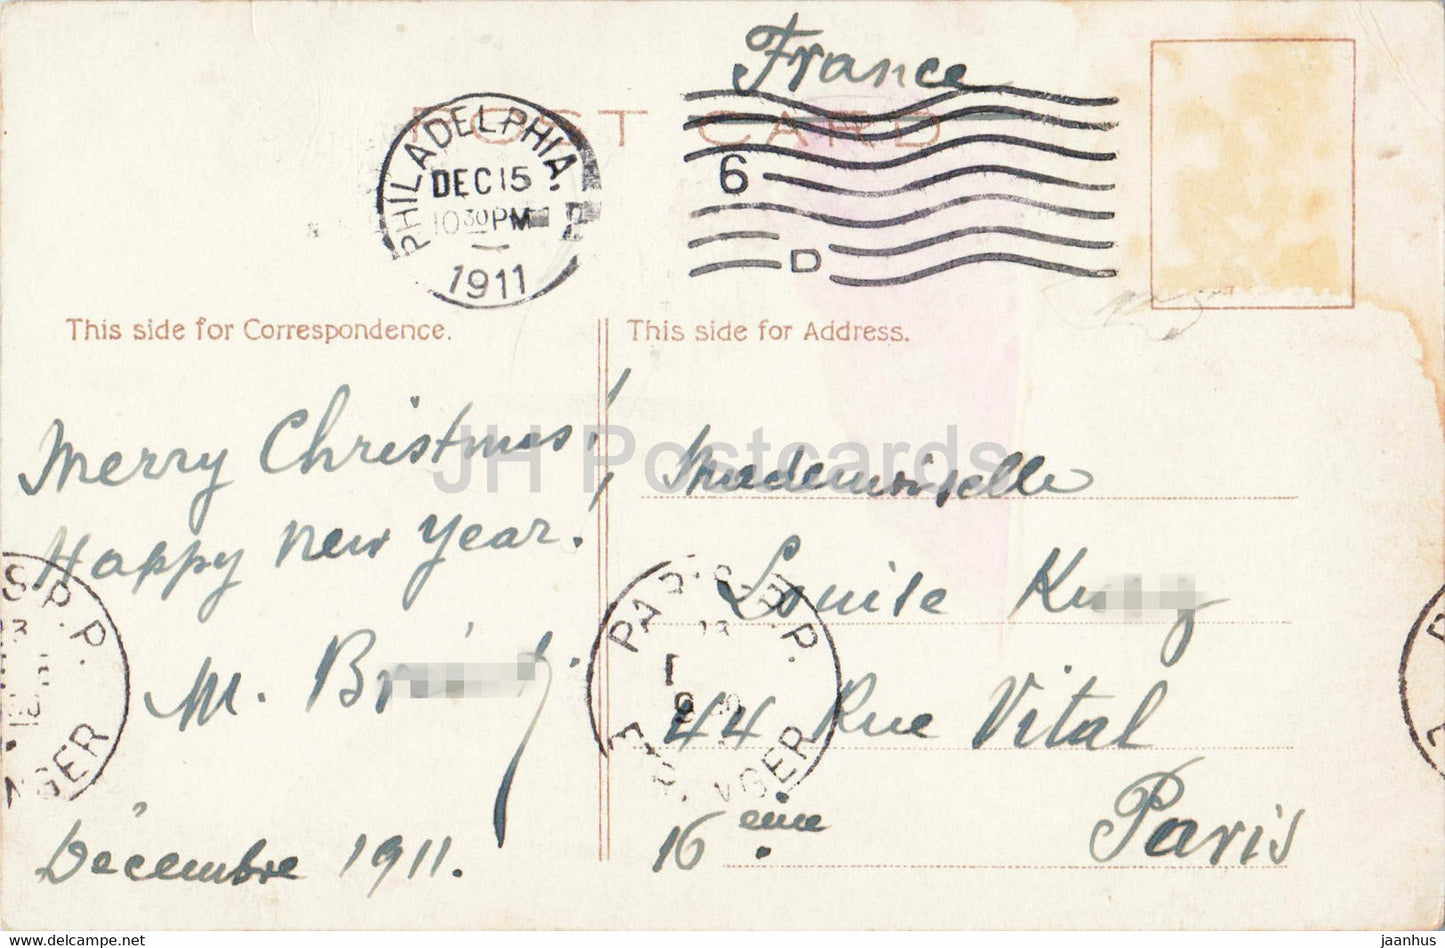 France
POST CARD
PHILADELPHIA, P
DEC 15
10 30 PM
1911
6
D
This side for Correspondence.
This side for Address.
Merry Christmas!
Happy New Year!
M.
Décembre 1911.
Mademoiselle
Louise
44 Rue Vital
Paris
16 eme
S.P.P.
NGER
PARIS P.P.
NGER
JH Postcards
www.delcampe.net
jaanhus